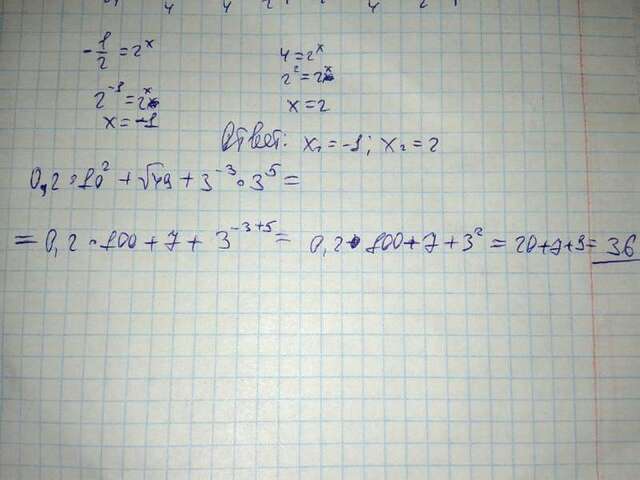 -1/2 = 2^x
4 = 2^x
2^-1 = 2^x
2^2 = 2^x
x = -1
x = 2
Ответ: x₁ = -1; x₂ = 2
0,2 · 10² + √49 + 3^-3 · 3^5 =
= 0,2 · 100 + 7 + 3^-3+5 = 0,2 · 100 + 7 + 3² = 20 + 7 + 9 = 36